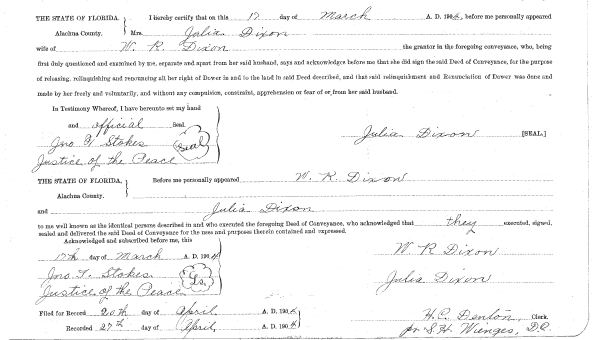 THE STATE OF FLORIDA, I hereby certify that on this 17 day of March A. D. 1904, before me personally appeared
Alachua County. Mrs. Julia Dixon
wife of W. R. Dixon the grantor in the foregoing conveyance, who, being
first duly questioned and examined by me, separate and apart from her said husband, says and acknowledges before me that she did sign the said Deed of Conveyance, for the purpose
of releasing, relinquishing and renouncing all her right of Dower in and to the land in said Deed described, and that said relinquishment and Renunciation of Dower was done and
made by her freely and voluntarily, and without any compulsion, constraint, apprehension or fear of or from her said husband.
In Testimony Whereof, I have hereunto set my hand
and official Seal
Jno T. Stokes Seal Julia Dixon [SEAL.]
Justice of the Peace
THE STATE OF FLORIDA, Before me personally appeared W. R. Dixon
Alachua County.
and Julia Dixon
to me well known as the identical persons described in and who executed the foregoing Deed of Conveyance, who acknowledged that they executed, signed,
sealed and delivered the said Deed of Conveyance for the uses and purposes therein contained and expressed.
Acknowledged and subscribed before me, this
17th day of March A. D. 1904 W. R Dixon
Jno. T. Stokes Ls. Julia Dixon
Justice of the Peace
Filed for Record 20th day of April A. D. 1904 H. C. Denton, Clerk.
Recorded 27th day of April A. D. 1904 pr S. H. Wienges, D.C.